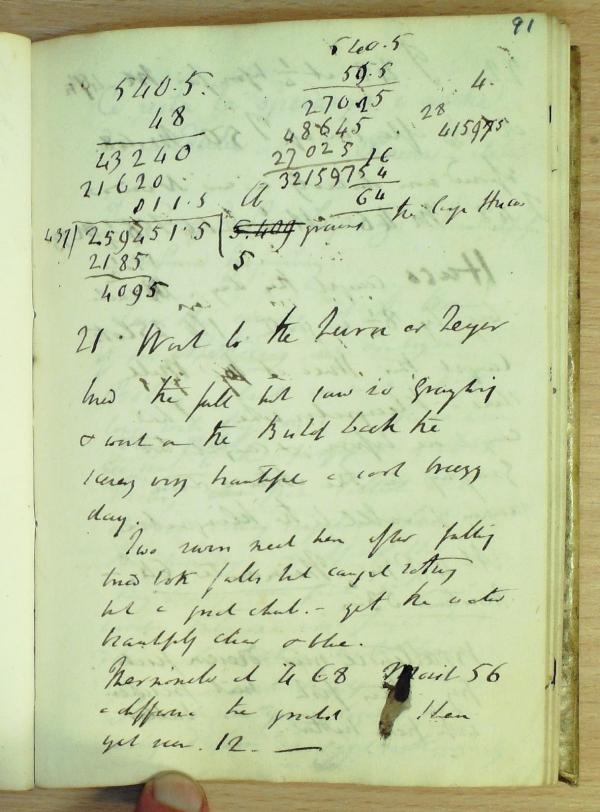 91
540.5.
48
43240
21620
811.5
437) 259451.5
2185
4095
540.5
59.5
27025
48645
27025
3215975
16
4
64
4.
28
415975
5.409 grains
5
the large Huco
21. Went to the Zurn or Zeyer
tried the fall but saw no Grayling
& went on the back the
very beautiful a cool breezy
day.
Two rivers meet here after falling
tried both falls but caught nothing
but a good chub. - yet the water
beautifully clear & blue.
Thermometer at 68 56
a difference the greatest I have
yet seen. 12. —